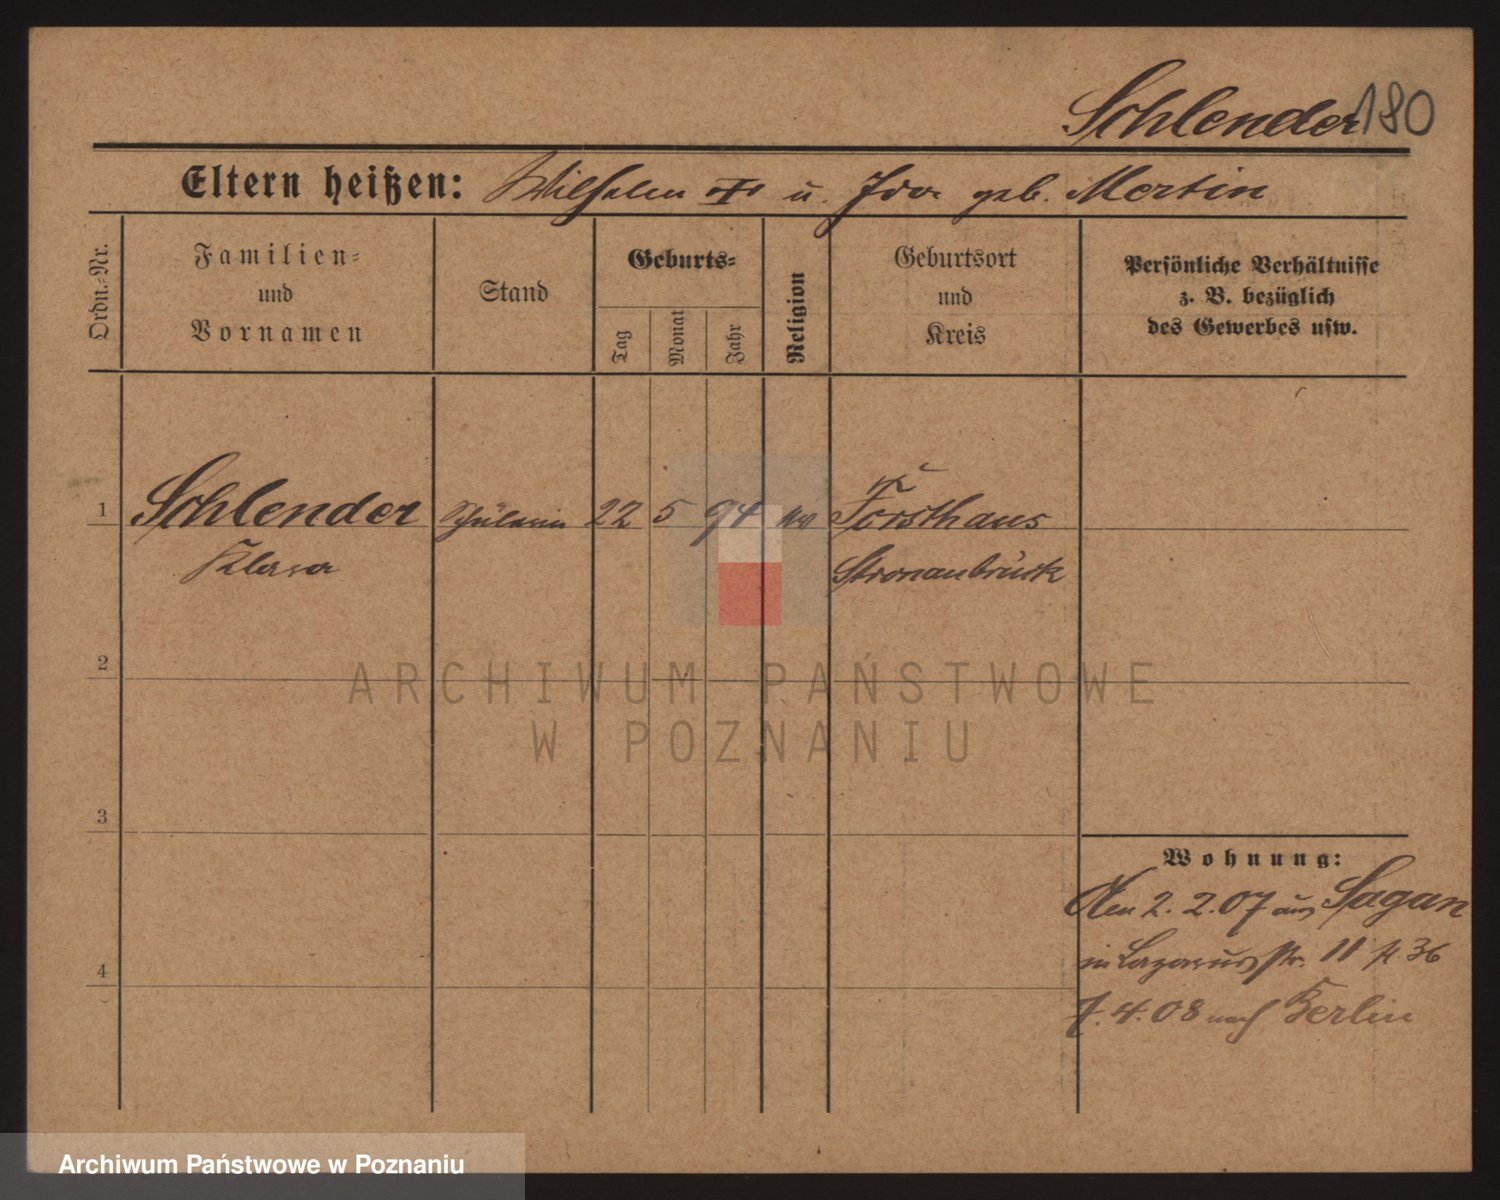 Schlender 180
Eltern heißen: Wilhelm u. Ida geb. Mertin
Ordn.-Nr.
Familien-
und
Vornamen
Stand
Geburts-
Tag
Monat
Jahr
Religion
Geburtsort
und
Kreis
Persönliche Verhältnisse
z. B. bezüglich
des Gewerbes usw.
1 Schlender Schülerin 22 5 94 ev Forsthaus
Klara Stronaubrück
2
ARCHIWUM PAŃSTWOWE
W POZNANIU
3
Wohnung:
Den 2. 2. 07 aus Sagan
in Lazarusstr. 11 36
7. 4. 08 nach Berlin
4
Archiwum Państwowe w Poznaniu